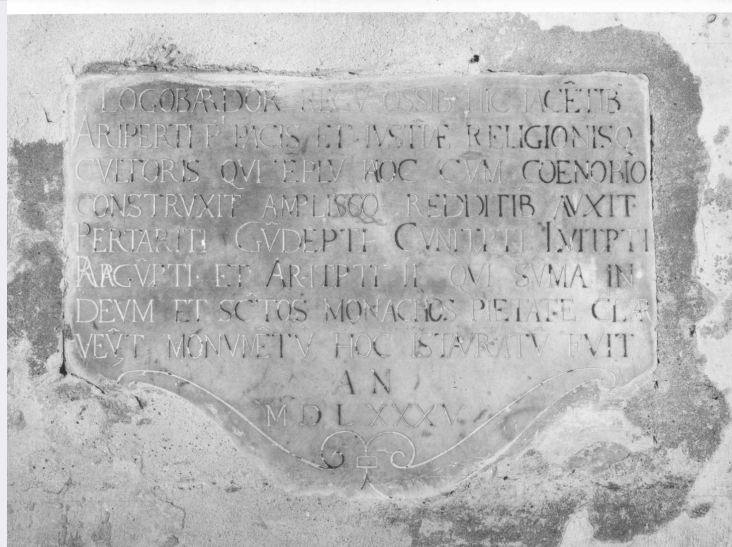 LOGOBARDOR REGV OSSIB HIC IACÊTIB
ARIPERTI P PACIS ET IVSTITIÆ RELIGIONISQ
CVLTORIS QVI TEPLV HOC CVM COENOBIO
CONSTRVXIT AMPLISSQ REDDITIB AVXIT
PERTARITI GVDEPTI CVNITPTI LVITPTI
RAGVPTI ET ARITPTI II QVI SVMA IN
DEVM ET SCTOS MONACHOS PIETATE CLAR
MONVMETV HOC ISTAVRATV FVIT
AN
MDLXXXV